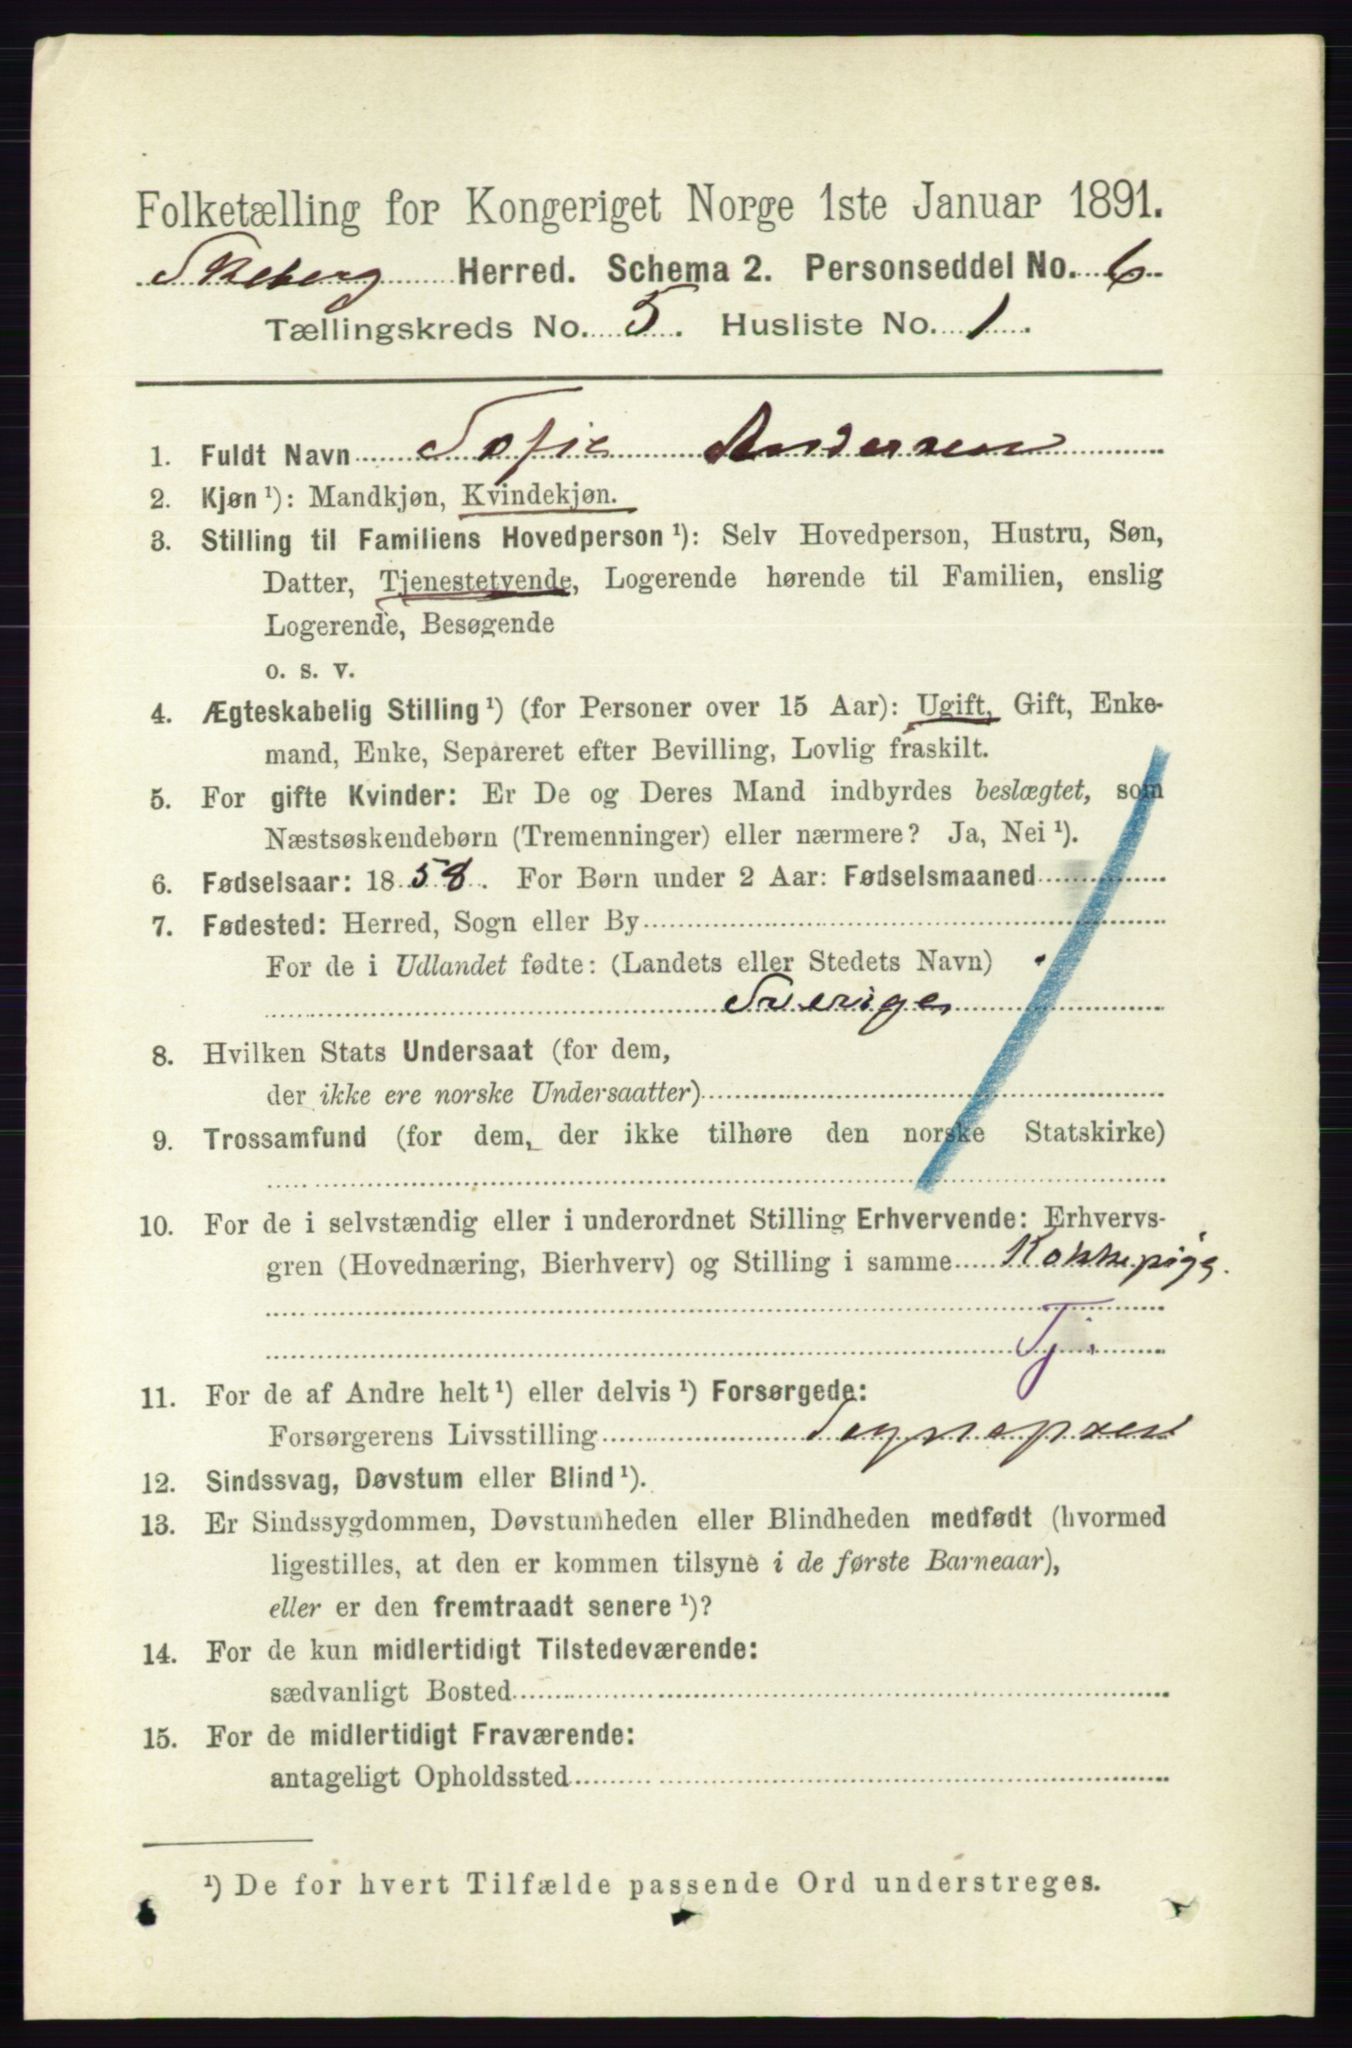 Folketælling for Kongeriget Norge 1ste Januar 1891.
Skeberg Herred. Schema 2. Personseddel No. 6
Tællingskreds No. 5. Husliste No. 1.
1. Fuldt Navn Sofie Andersen
2. Kjøn ¹): Mandkjøn, Kvindekjøn.
3. Stilling til Familiens Hovedperson ¹): Selv Hovedperson, Hustru, Søn,
Datter, Tjenestetyende, Logerende hørende til Familien, enslig
Logerende, Besøgende
o. s. v.
4. Ægteskabelig Stilling ¹) (for Personer over 15 Aar): Ugift, Gift, Enke-
mand, Enke, Separeret efter Bevilling, Lovlig fraskilt.
5. For gifte Kvinder: Er De og Deres Mand indbyrdes beslægtet, som
Næstsøskendebørn (Tremenninger) eller nærmere? Ja, Nei ¹).
6. Fødselsaar: 1858. For Børn under 2 Aar: Fødselsmaaned
7. Fødested: Herred, Sogn eller By
For de i Udlandet fødte: (Landets eller Stedets Navn)
Sverige
8. Hvilken Stats Undersaat (for dem,
der ikke ere norske Undersaatter)
9. Trossamfund (for dem, der ikke tilhøre den norske Statskirke)
10. For de i selvstændig eller i underordnet Stilling Erhvervende: Erhvervs-
gren (Hovednæring, Bierhverv) og Stilling i samme Kokkepige.
Tj.
11. For de af Andre helt ¹) eller delvis ¹) Forsørgede:
Forsørgerens Livsstilling
12. Sindssvag, Døvstum eller Blind ¹).
13. Er Sindssygdommen, Døvstumheden eller Blindheden medfødt (hvormed
ligestilles, at den er kommen tilsyne i de første Barneaar),
eller er den fremtraadt senere ¹)?
14. For de kun midlertidigt Tilstedeværende:
sædvanligt Bosted
15. For de midlertidigt Fraværende:
antageligt Opholdssted
¹) De for hvert Tilfælde passende Ord understreges.